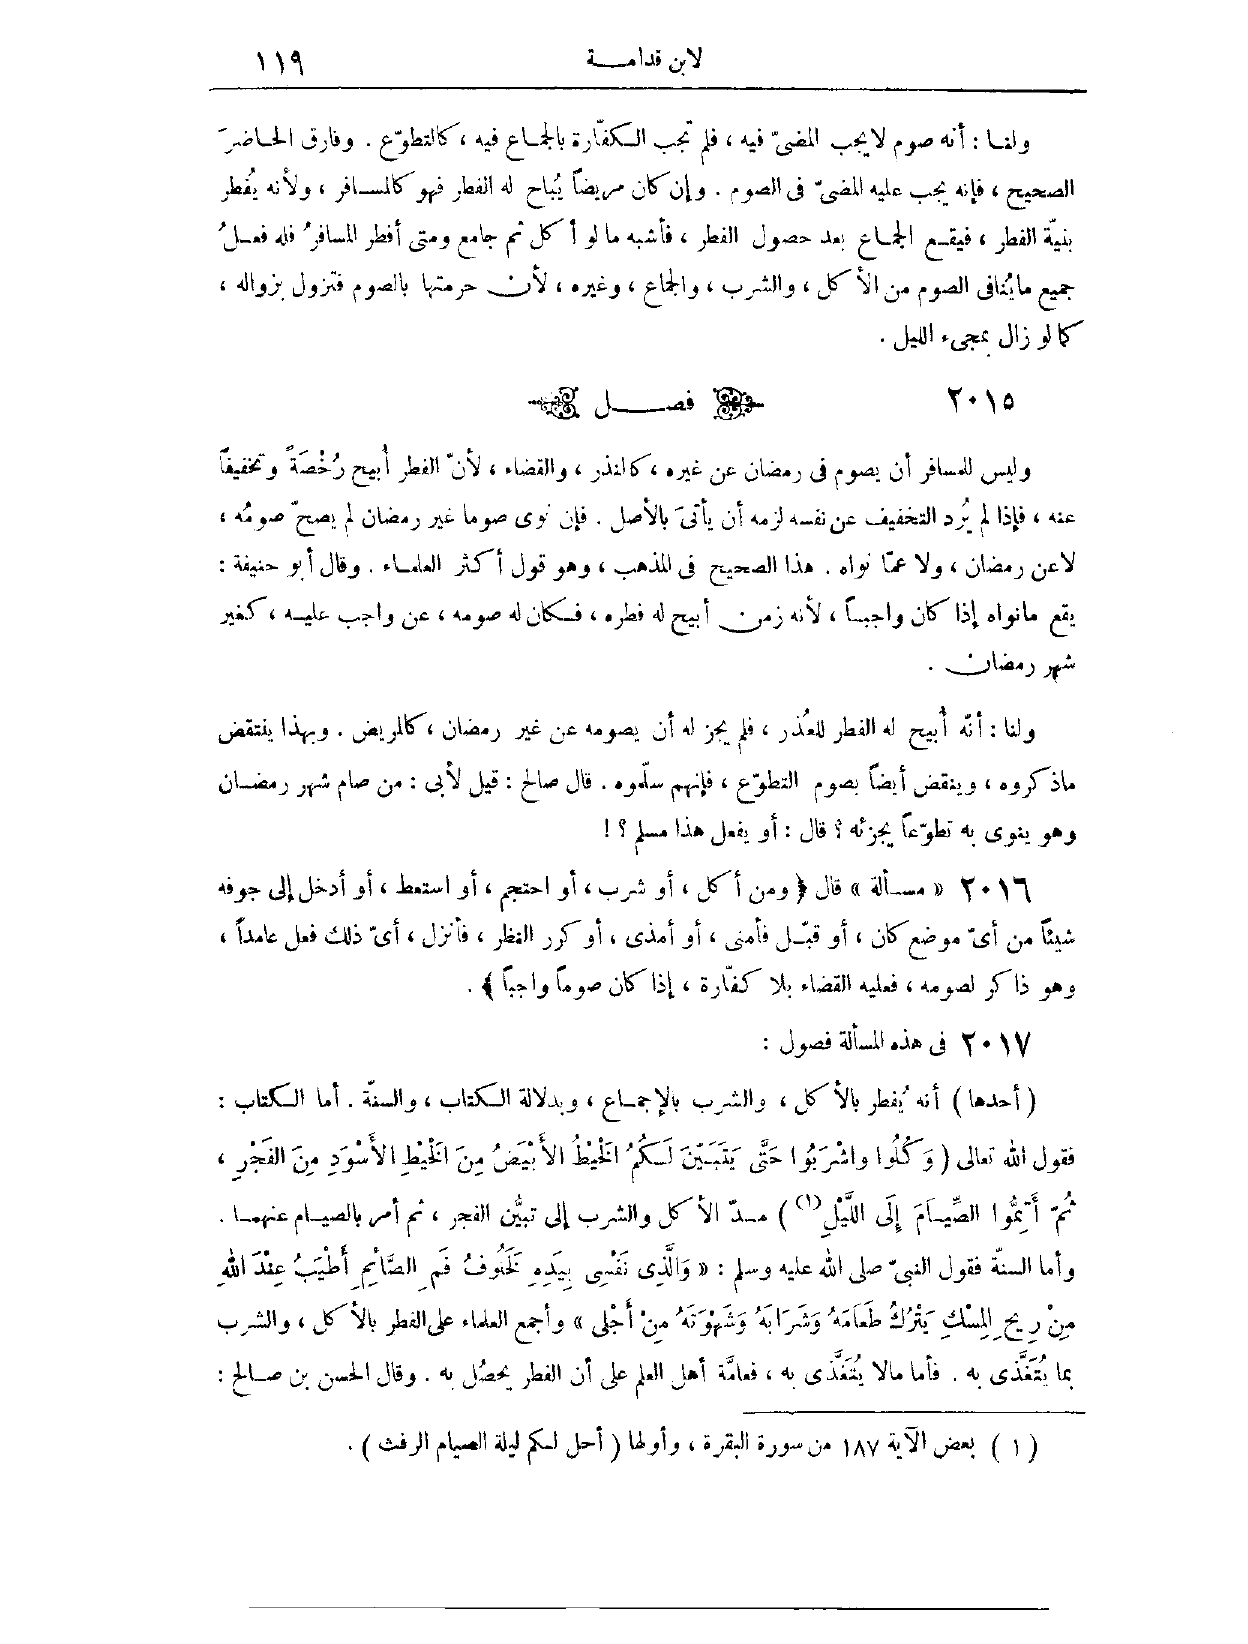 لابن قدامـــة ١١٩
ولنـا : أنه صوم لايجب المضىّ فيه ، فلم تجب الـكفّارة بالجماع فيه ، كالتطوّع . وفارق الحـاضرَ
الصحيح ، فإنه يجب عليه المضىّ فى الصوم . وإن كان مريضاً يُباح له الفطر فهو كالمسـافر ، ولأنه يُفطر
بنيّة الفطر ، فيقـع الجمـاع بعد حصول الفطر ، فأشبه ما لو أكل ثم جامع ومتى أفطر المسافرُ فله فعـلُ
جميع مايُنافى الصوم من الأكل ، والشرب ، والجماع ، وغيره ، لأن حرمتها بالصوم فتزول بزواله ،
كما لو زال بمجىء الليل .
٢٠١٥ فصـــــل
وليس للمسافر أن يصوم فى رمضان عن غيره ، كالنذر ، والقضاء ، لأنّ الفطر أُبيح رُخْصَةً وتخفيفاً
عنه ، فإذا لم يُرد التخفيف عن نفسه لزمه أن يأتىَ بالأصل . فإن نوى صوما غير رمضان لم يصحّ صومُه ،
لاعن رمضان ، ولا عمّا نواه . هذا الصحيح فى المذهب ، وهو قول أكثر العلمـاء . وقال أبو حنيفة :
يقع مانواه إذا كان واجبـاً ، لأنه زمن أبيح له فطره ، فـكان له صومه ، عن واجب عليـه ، كغير
شهر رمضان .
ولنا : أنّه أُبيح له الفطر للعُذر ، فلم يجز له أن يصومه عن غير رمضان ، كالمريض . وبهذا ينتقض
ماذكروه ، وينقض أيضاً بصوم التطوّع ، فإنهم سلّموه . قال صالح : قيل لأبى : من صام شهر رمضـان
وهو ينوى به تطوّعاً يجزئه ؟ قال : أو يفعل هذا مسلم ؟ !
٢٠١٦ « مسـألة » قال ﴿ ومن أكل ، أو شرب ، أو احتجم ، أو استعط ، أو أدخل إلى جوفه
شيئاً من أىّ موضع كان ، أو قبّـل فأمنى ، أو أمذى ، أو كرر النظر ، فأنزل ، أىّ ذلك فعل عامداً ،
وهو ذاكر لصومه ، فعليه القضاء بلا كفّارة ، إذا كان صوماً واجباً ﴾ .
٢٠١٧ فى هذه المسألة فصول :
( أحدها ) أنه يُفطر بالأكل ، والشرب بالإجمـاع ، وبدلالة الـكتاب ، والسنّة . أما الـكتاب :
فقول الله تعالى ( وَكُلُوا واشْرَبُوا حَتَّى يَتَبَـيَّنَ لَـكُمُ الْخَيْطُ الأَبْيَضُ مِنَ الْخَيْطِ الأَسْوَدِ مِنَ الفَجْرِ ،
ثُمّ أَتِمُّوا الصِّيـامَ إِلَى اللَّيْلِ(١) ) مـدّ الأكل والشرب إلى تبيُّن الفجر ، ثم أمر بالصيـام عنهمـا .
وأما السنّة فقول النبىّ صلى الله عليه وسلم : « وَالَّذِى نَفْسِى بِيَدِهِ لَخَلُوفُ فَمِ الصَّائِمِ أَطْيَبُ عِنْدَ اللهِ
مِنْ رِيحِ المِسْكِ يَتْرُكُ طَعَامَهُ وَشَرَابَهُ وَشَهْوَتَهُ مِنْ أَجْلِى » وأجمع العلماء على الفطر بالأكل ، والشرب
بما يُتَغَذَّى به . فأما مالا يُتَغَذَّى به ، فعامَّة أهل العلم على أن الفطر يحصُل به . وقال الحسن بن صـالح :
( ١ ) بعض الآية ١٨٧ من سورة البقرة ، وأولها ( أحل لـكم ليلة الصيام الرفث ) .